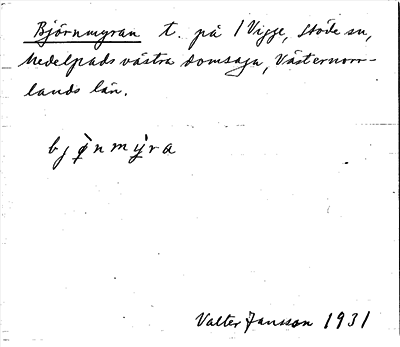 Björnmyran t. på 1 Vigge, Stöde sn,
Medelpads västra domsaga, Västernorr-
lands län.
bjø̀nmỳra
Valter Jansson 1931